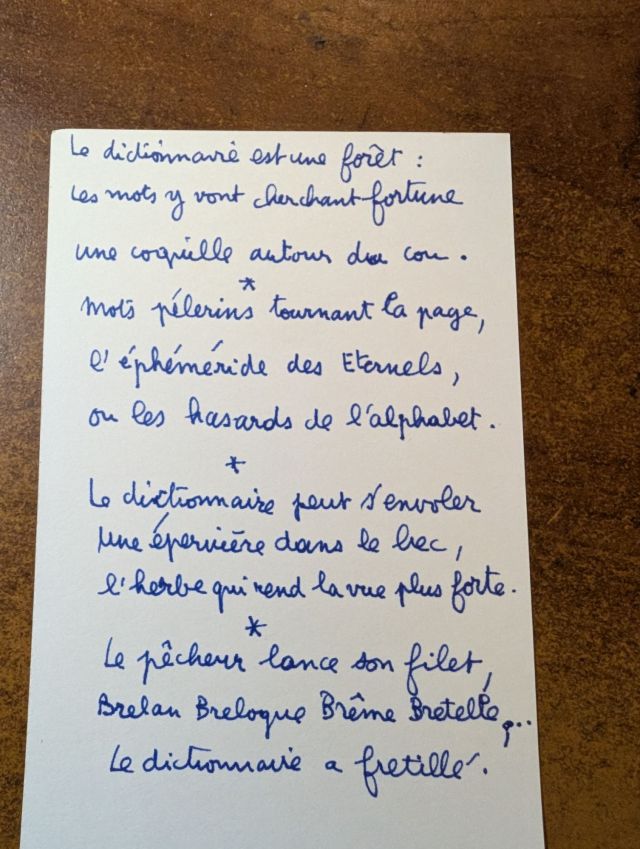 Le dictionnaire est une forêt :
Les mots y vont cherchant fortune
une coquille autour du cou.
*
Mots pélerins tournant la page,
l'éphéméride des Eternels,
ou les hasards de l'alphabet.
*
Le dictionnaire peut s'envoler
Une épervière dans le bec,
l'herbe qui rend la vue plus forte.
*
Le pêcheur lance son filet,
Brelan Breloque Brême Bretelle,...
Le dictionnaire a fretillé.